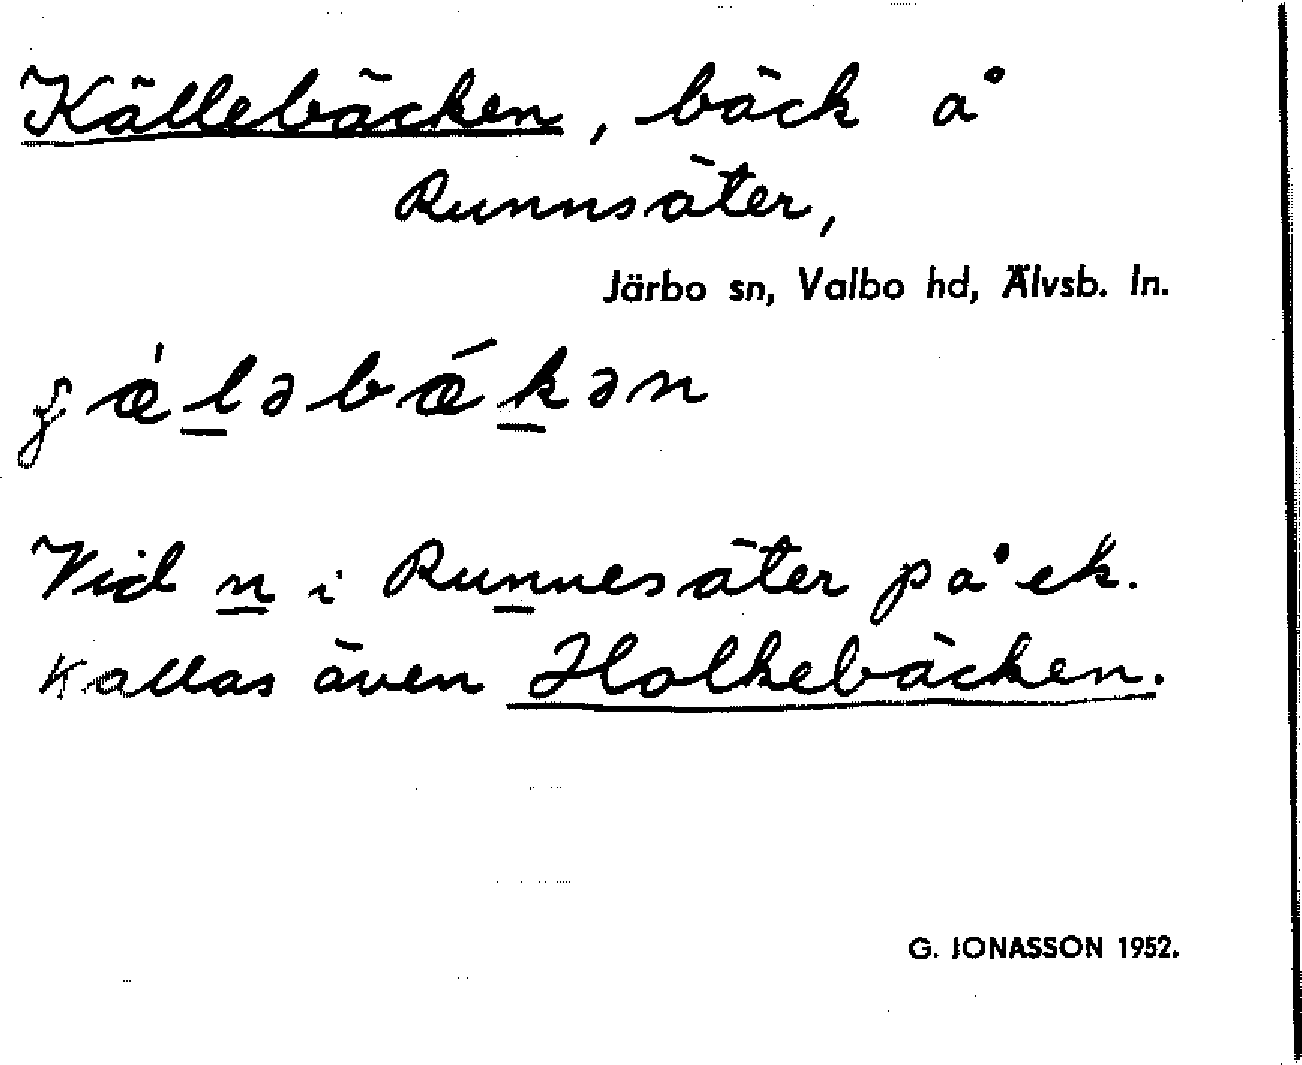 Källebäcken, bäck å
Runnsäter,
Järbo sn, Valbo hd, Älvsb. ln.
ʝæ̀l̲əbǽk̲ən
Vid n̲ i Run̲nesäter på ek.
Kallas även Holkebäcken.
G. JONASSON 1952.